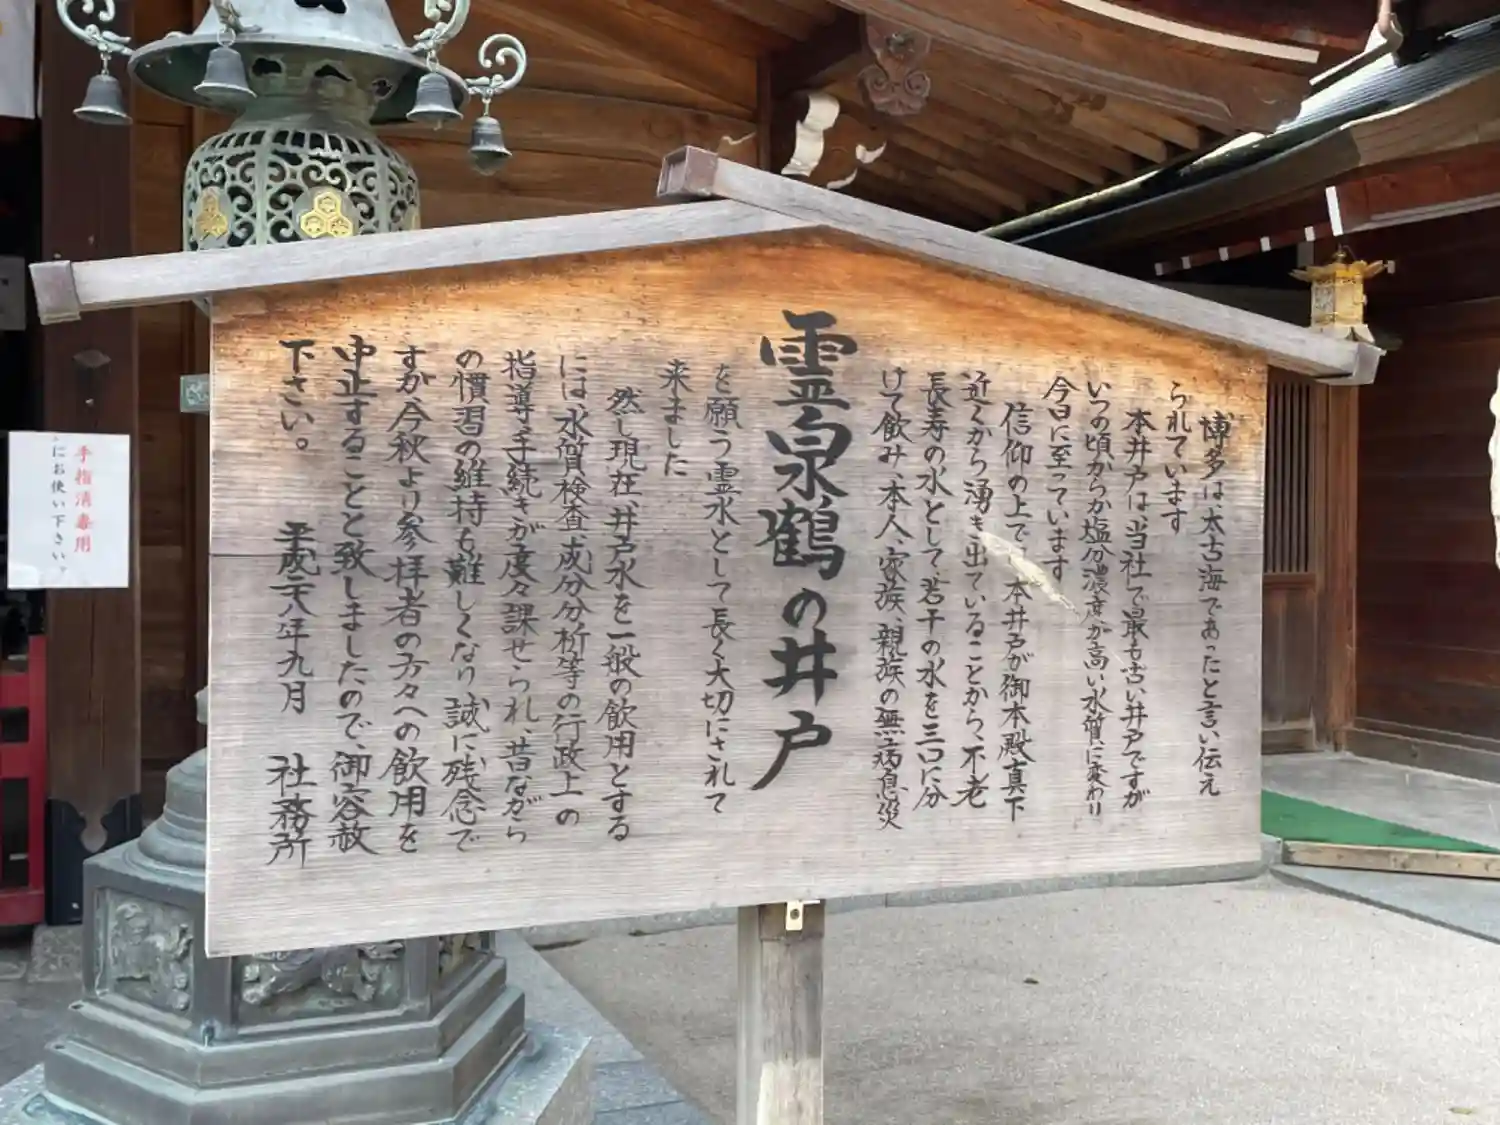 博多は、太古海であったと言い伝え
られています
本井戸は当社で最も古い井戸ですが
いつの頃からか塩分濃度が高い水質に変わり
今日に至っています
信仰の上で 本井戸が御本殿真下
近くから湧き出ていることから、不老
長寿の水として、若干の水を三口に分
けて飲み、本人、家族、親族の無病息災
霊泉鶴の井戸
を願う霊水として長く大切にされて
来ました
然し現在、井戸水を一般の飲用とする
には、水質検査、成分分析等の行政上の
指導、手続きが度々課せられ、昔ながら
の慣習の維持も難しくなり誠に残念で
すが、今秋より参拝者の方々への飲用を
中止することと致しましたので、御容赦
下さい。
平成二八年九月 社務所
手指消毒用
にお使い下さい。